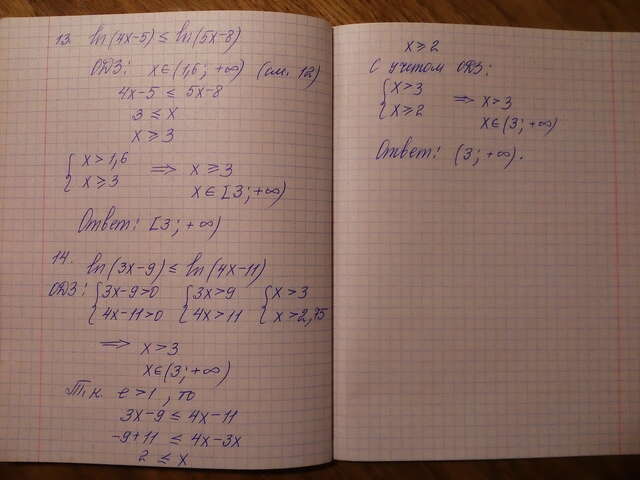 13. ln(4x-5) ≤ ln(5x-8)
ОДЗ: x∈(1,6; +∞) (см. 12)
4x-5 ≤ 5x-8
3 ≤ x
x ≥ 3
{ x > 1,6
{ x ≥ 3 ⟹ x ≥ 3
x∈[3; +∞)
Ответ: [3; +∞)
14. ln(3x-9) ≤ ln(4x-11)
ОДЗ: { 3x-9>0 { 3x>9 { x>3
{ 4x-11>0 { 4x>11 { x>2,75
⟹ x>3
x∈(3; +∞)
Т.к. e>1, то
3x-9 ≤ 4x-11
-9+11 ≤ 4x-3x
2 ≤ x
x ≥ 2
С учетом ОДЗ:
{ x>3
{ x≥2 ⟹ x>3
x∈(3; +∞)
Ответ: (3; +∞).